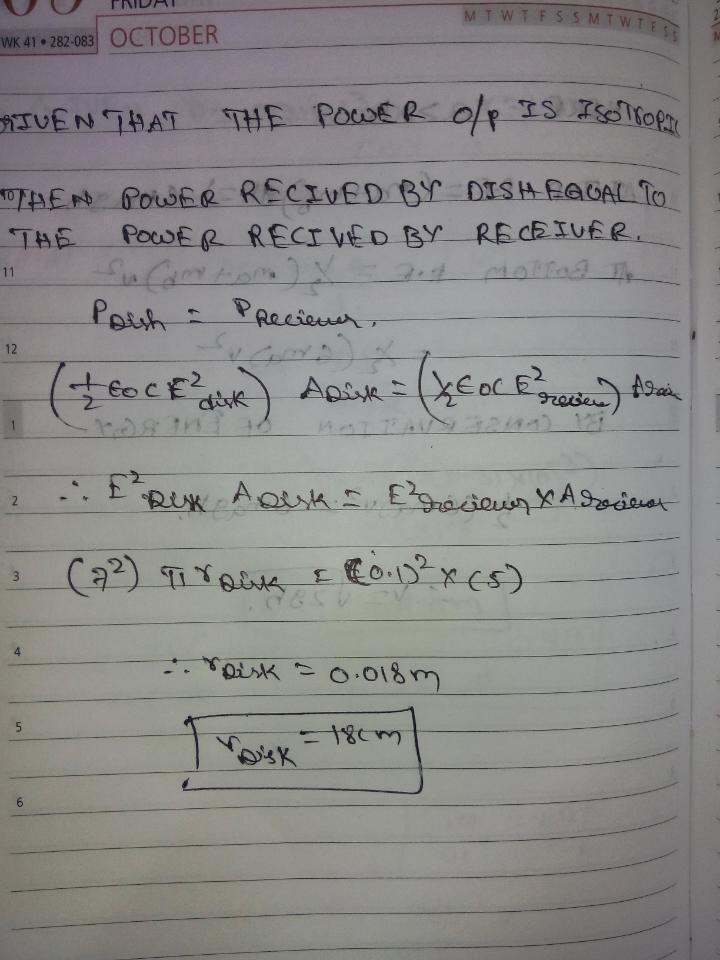 FRIDAY
M T W T F S S M T W T F S S
WK 41 • 282-083 OCTOBER
GIVEN THAT THE POWER O/P IS ISOTROPIC
THEN POWER RECIVED BY DISH EQUAL TO
THE POWER RECIVED BY RECEIVER.
11
P Dish = P Reciever.
12
(1/2 ϵ0 C E² disk) A Disk = (1/2 ϵ0 C E² reciever)
1
2 ∴ E² Disk A Disk = E² reciever × A reciever
3 (7²) π r Disk = (0.1)² × (5)
4
∴ r Disk = 0.018m
5
r Disk = 18cm
6